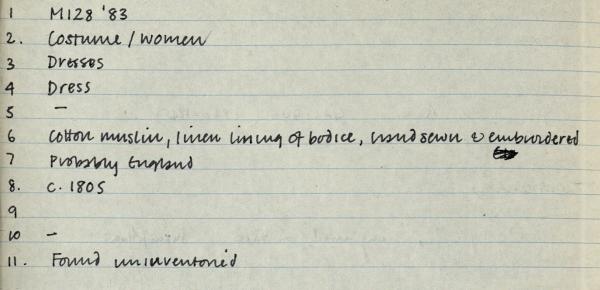 1 M128 '83
2. Costume / women
3 Dresses
4 Dress
5 -
6 Cotton muslin, linen lining of bodice, hand sewn & embirdered
7 Probably England
8. c. 1805
9
10 -
11. Found uninventoried